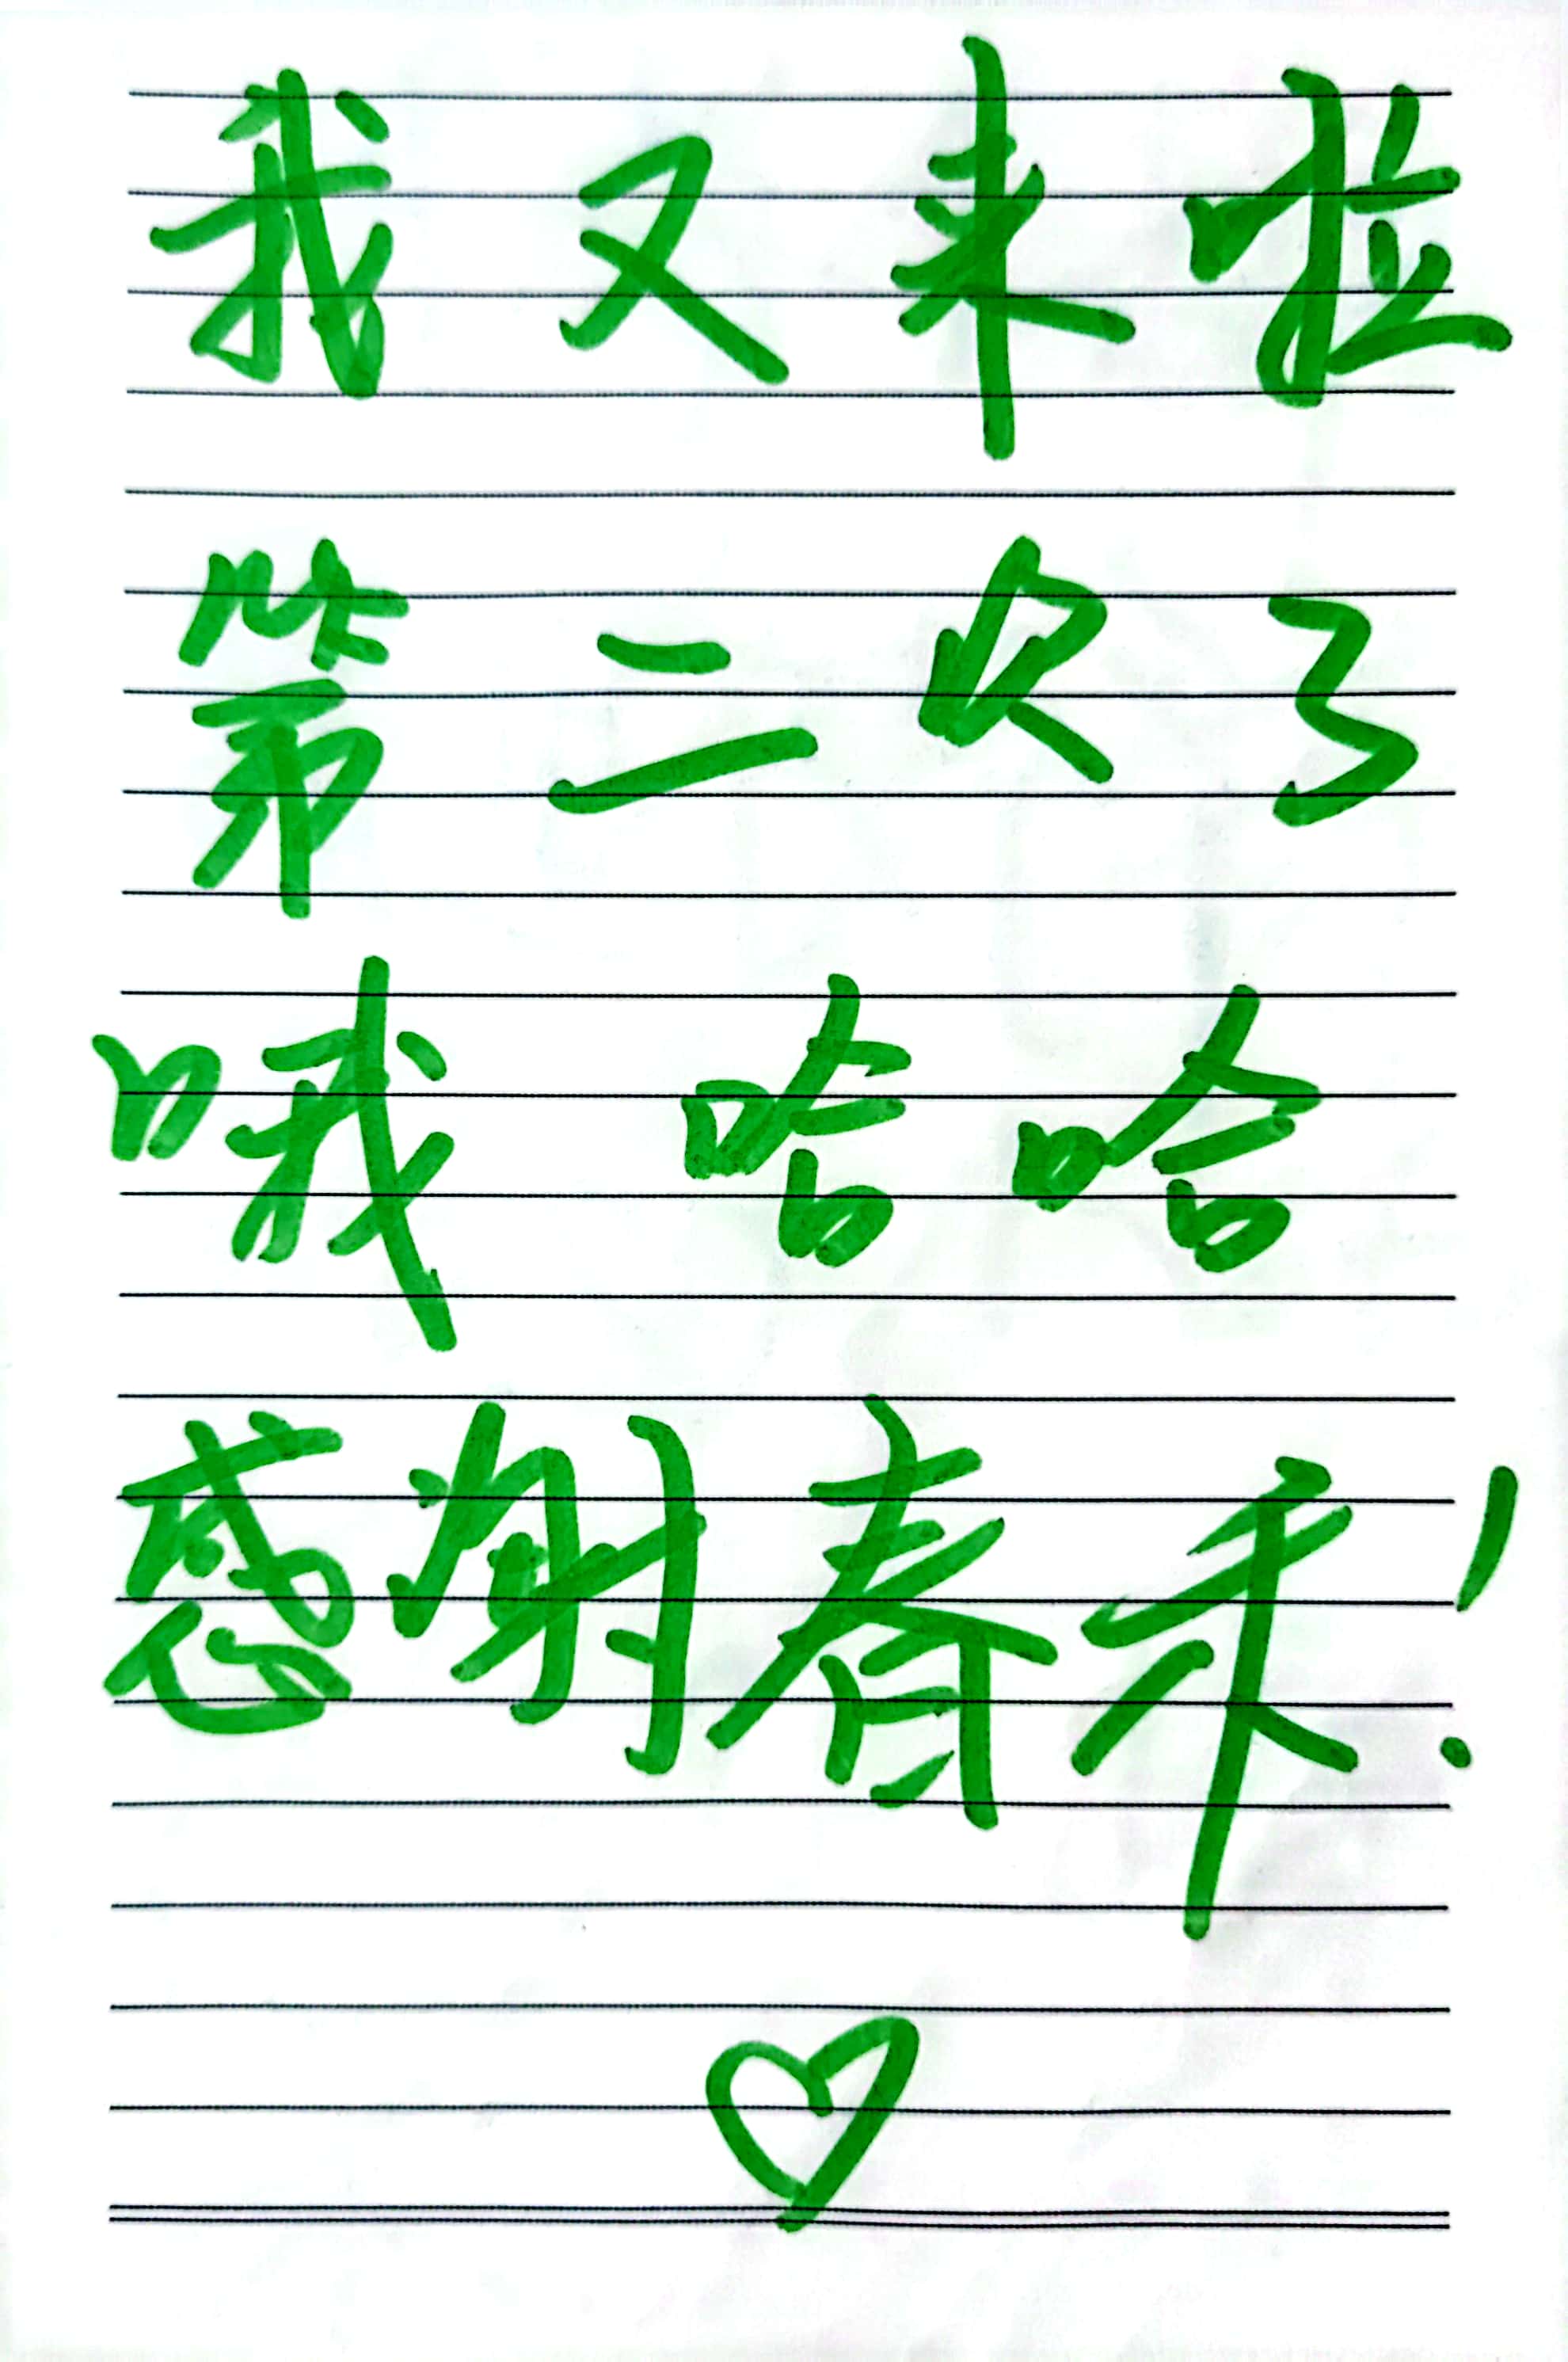 我又来啦
第二次了
哦 哈哈
感谢春禾!